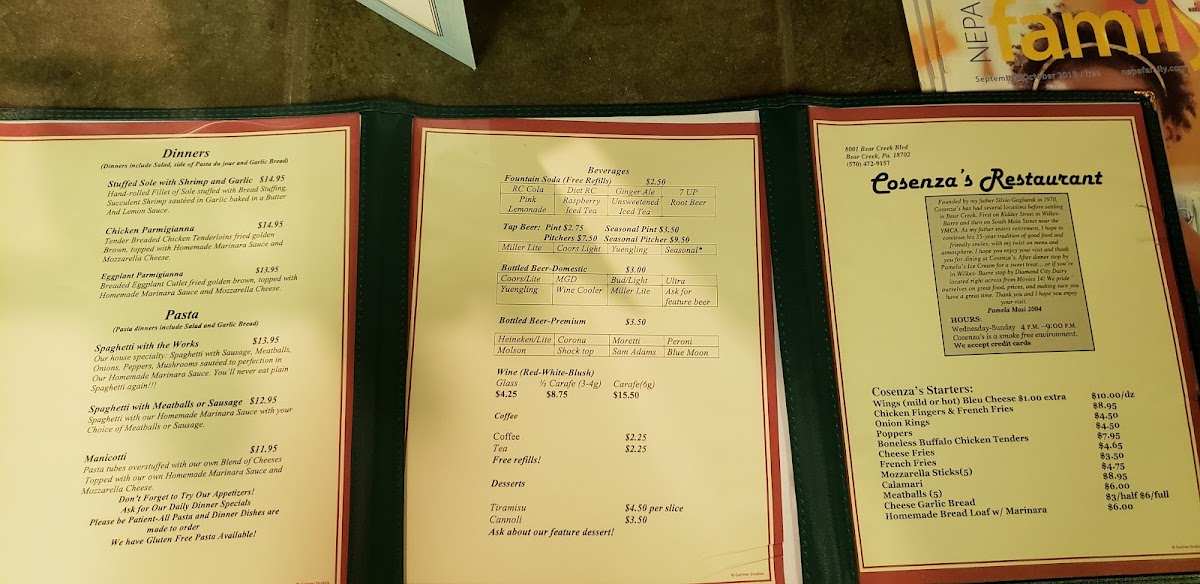 NEPA
family
September/October 2019 free nepafamily.com
Dinners
(Dinners include Salad, side of Pasta du jour and Garlic Bread)
Stuffed Sole with Shrimp and Garlic $14.95
Hand-rolled Fillet of Sole stuffed with Bread Stuffing,
Succulent Shrimp sautéed in Garlic baked in a Butter
And Lemon Sauce.
Chicken Parmigianna $14.95
Tender Breaded Chicken Tenderloins fried golden
Brown, topped with Homemade Marinara Sauce and
Mozzarella Cheese.
Eggplant Parmigianna $13.95
Breaded Eggplant Cutlet fried golden brown, topped with
Homemade Marinara Sauce and Mozzarella Cheese.
Pasta
(Pasta dinners include Salad and Garlic Bread)
Spaghetti with the Works $13.95
Our house specialty: Spaghetti with Sausage, Meatballs,
Onions, Peppers, Mushrooms sautéed to perfection in
Our Homemade Marinara Sauce. You'll never eat plain
Spaghetti again!!!
Spaghetti with Meatballs or Sausage $12.95
Spaghetti with our Homemade Marinara Sauce with your
Choice of Meatballs or Sausage.
Manicotti $11.95
Pasta tubes overstuffed with our own Blend of Cheeses
Topped with our own Homemade Marinara Sauce and
Mozzarella Cheese.
Don't Forget to Try Our Appetizers!
Ask for Our Daily Dinner Specials
Please be Patient-All Pasta and Dinner Dishes are
made to order
We have Gluten Free Pasta Available!
© Gartner Studios
Beverages
Fountain Soda (Free Refills) $2.50
RC Cola Diet RC Ginger Ale 7 UP
Pink Lemonade Raspberry Iced Tea Unsweetened Iced Tea Root Beer
Tap Beer: Pint $2.75 Seasonal Pint $3.50
Pitchers $7.50 Seasonal Pitcher $9.50
Miller Lite Coors Light Yuengling Seasonal*
Bottled Beer-Domestic $3.00
Coors/Lite MGD Bud/Light Ultra
Yuengling Wine Cooler Miller Lite Ask for feature beer
Bottled Beer-Premium $3.50
Heineken/Lite Corona Moretti Peroni
Molson Shock top Sam Adams Blue Moon
Wine (Red-White-Blush)
Glass ½ Carafe (3-4g) Carafe(6g)
$4.25 $8.75 $15.50
Coffee
Coffee $2.25
Tea $2.25
Free refills!
Desserts
Tiramisu $4.50 per slice
Cannoli $3.50
Ask about our feature dessert!
© Gartner Studios
8001 Bear Creek Blvd
Bear Creek, Pa. 18702
(570) 472-9157
Cosenza's Restaurant
Founded by my father Silvio Gagliardi in 1970,
Cosenza's has had several locations before settling
in Bear Creek. First on Kidder Street in Wilkes-
Barre and then on South Main Street near the
YMCA. As my father enters retirement, I hope to
continue his 35-year tradition of good food and
friendly smiles, with my twist on menu and
atmosphere. I hope you enjoy your visit and thank
you for dining at Cosenza's. After dinner stop by
Pamela's Ice Cream for a sweet treat... or if you're
in Wilkes- Barre stop by Diamond City Dairy
located right across from Movies 14! We pride
ourselves on great food, prices, and making sure you
have a great time. Thank you and I hope you enjoy
your visit.
Pamela Masi 2004
HOURS:
Wednesday-Sunday 4 P.M. –9:00 P.M.
Cosenza's is a smoke free environment.
We accept credit cards
Cosenza's Starters:
Wings (mild or hot) Bleu Cheese $1.00 extra $10.00/dz
Chicken Fingers & French Fries $8.95
Onion Rings $4.50
Poppers $4.50
Boneless Buffalo Chicken Tenders $7.95
Cheese Fries $4.65
French Fries $3.50
Mozzarella Sticks(5) $4.75
Calamari $8.95
Meatballs (5) $6.00
Cheese Garlic Bread $3/half $6/full
Homemade Bread Loaf w/ Marinara $6.00
© Gartner Studios